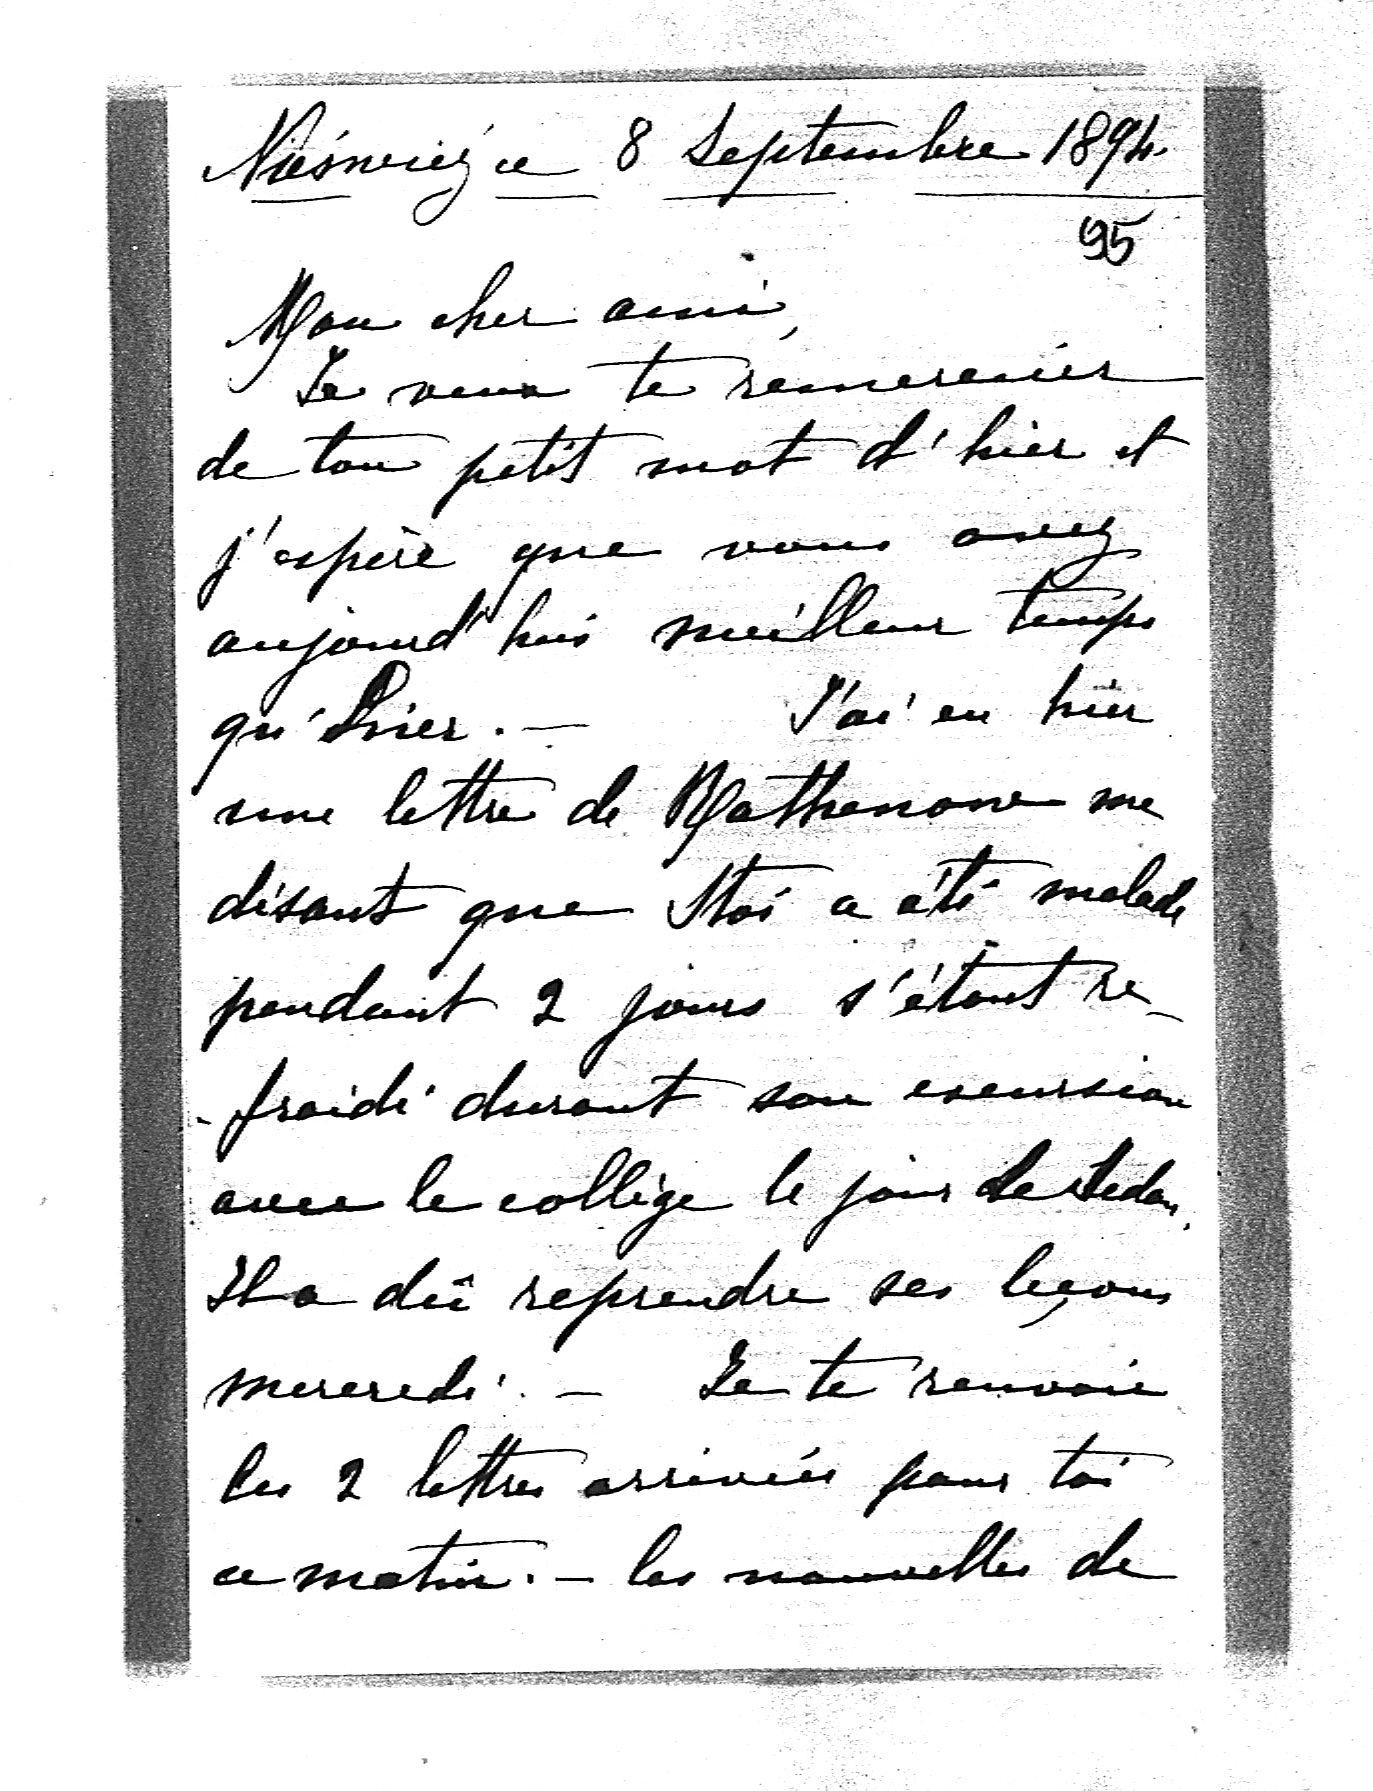 Nieśwież ce 8 Septembre 1894.
95
Mon cher ami,
Je veux te remercier
de ton petit mot d'hier et
j'espère que vous avez
aujourd'hui meilleur temps
qu'hier. — J'ai eu hier
une lettre de Mathenone me
disant que Stas a été malade
pendant 2 jours s'étant re-
-froidi durant son excursion
avec le collège le jour de Sedan.
Il a dû reprendre ses leçons
mercredi. — Je te renvoie
les 2 lettres arrivées pour toi
ce matin. — les nouvelles de